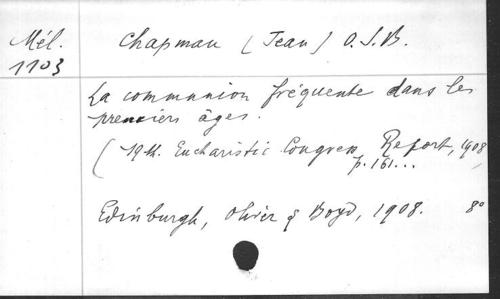 Mél.
1103
Chapman (Jean) O.S.B.
La communion fréquente dans les
premiers âges.
(19th. Eucharistic Congress Report, 1908
p. 161...
Edinburgh, Olivier & Boyd, 1908. 8º